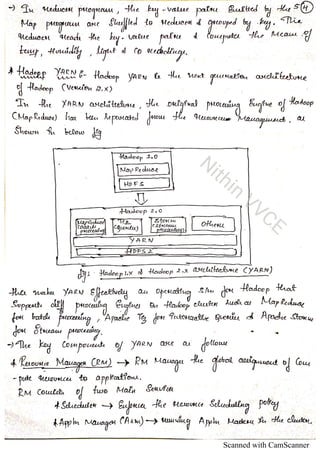 → In reducer program, the key-value pairs emitted by the 54
Map program are shuffled to reducer & grouped by key. The
reducer reads the key-value pairs & computes the mean of
temp, Humidity, light & CO readings.
* Hadoop YARN :- Hadoop YARN is the next generation architecture
of Hadoop (version 2.x)
In the YARN architecture, the original processing Engine of Hadoop
(MapReduce) has been separated from the resource Management, as
shown in below fig
Hadoop 1.0
MapReduce
HDFS
Hadoop 2.0
MapReduce (batch processing)
Tez (Queries)
Storm (Stream processing)
Others
YARN
HDFS 2
fig: Hadoop 1.x & Hadoop 2.x architecture (YARN)
→ this makes YARN Effectively an operating S/m for Hadoop that
supports diff processing Engines on Hadoop cluster such as MapReduce
for batch processing, Apache Tez for Interactive Queries & Apache Storm
for Stream processing.
→ The key components of YARN are as follows
* Resource Manager (RM) → RM Manages the global assignment of Com
-pute resources to applications.
RM consists of two main Services
* Scheduler → Enforces the resource Scheduling policy
* Appln Manager (AsM) → running Appln Masters in the cluster.
Nithin VVCE
Scanned with CamScanner